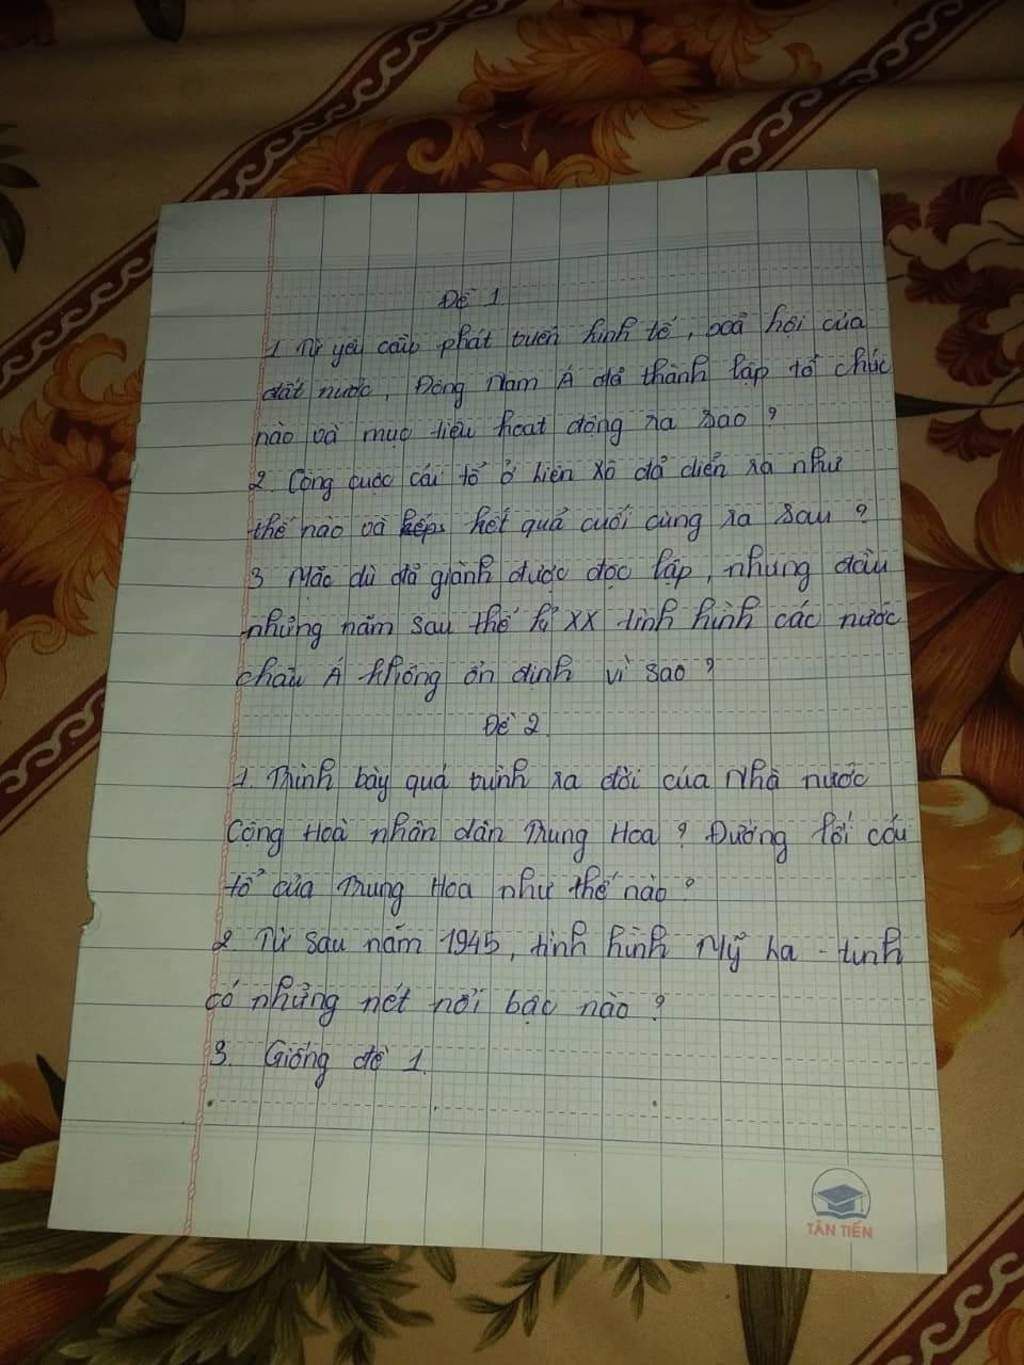 Đề 1
1 Từ yêu cầu phát triển kinh tế, xoã hội của
đất nước, Đông Nam Á đả thành lập tổ chức
nào và mục tiêu hoạt động ra sao ?
2. Công cuộc cải tổ ở Liên Xô đả diển ra như
thế nào và kết quả cuối cùng ra sau ?
3 Mặc dù đả giành được độc lập, nhưng đầu
những năm sau thế kỉ XX tình hình các nước
châu Á không ổn định vì sao ?
Đề 2
1. Trình bày quá trình ra đời của Nhà nước
Cộng Hoà nhân dân Trung Hoa ? Đường lối cải
tổ của Trung Hoa như thế nào ?
2 Từ sau năm 1945, tình hình Mỹ La - tinh
có những nét nổi bậc nào ?
3. Giống đề 1.
TÂN TIẾN